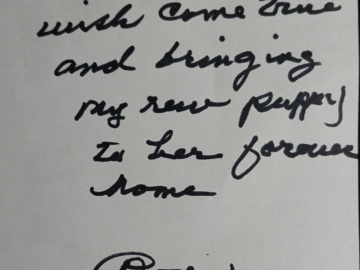 wish come true
and bringing
my new puppy
to her forever
home